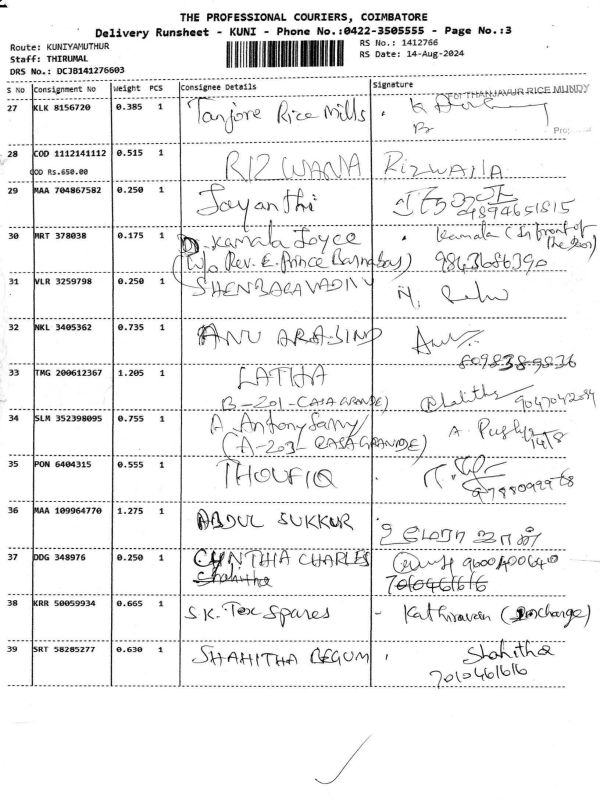 THE PROFESSIONAL COURIERS, COIMBATORE
Delivery Runsheet - KUNI - Phone No.:0422-3505555 - Page No.:3
Route: KUNIYAMUTHUR
Staff: THIRUMAL
DRS No.: DCJB141276603
RS No.: 1412766
RS Date: 14-Aug-2024
S No Consignment No Weight PCS Consignee Details Signature
27 KLK 8156720 0.385 1 Tanjore Rice Mills
For THANJAVUR RICE MUNDY
28 COD 1112141112 0.515 1 RIZWANA Rizwana
COD Rs.650.00
29 MAA 704867582 0.250 1 Jayanthi
9894651815
30 MRT 378038 0.175 1 D. Kamala Joyce Kamala (In front of the door)
(W/o Rev. E. Prince Barnabas) 9843686390
31 VLR 3259798 0.250 1 SHENBAGAVADIV
32 NKL 3405362 0.735 1 ANU ARASIND
33 TMG 200612367 1.205 1 LATHA
B-201-CASAGRANDE) Lalitha
34 SLM 352398095 0.755 1 A Antony Samy
(A-203- CASAGRANDE) A.
35 PON 6404315 0.555 1 THOUFIQ
36 MAA 109964770 1.275 1 ABDUL SUKKUR
37 DDG 348976 0.250 1 CYNTHIA CHARLES 9600400640
Shahitha 7010461616
38 KRR 50059934 0.665 1 S.K. Tex Spares - Kathiravan (Incharge)
39 SRT 58285277 0.630 1 SHAHITHA BEGUM Shahitha
7010461616